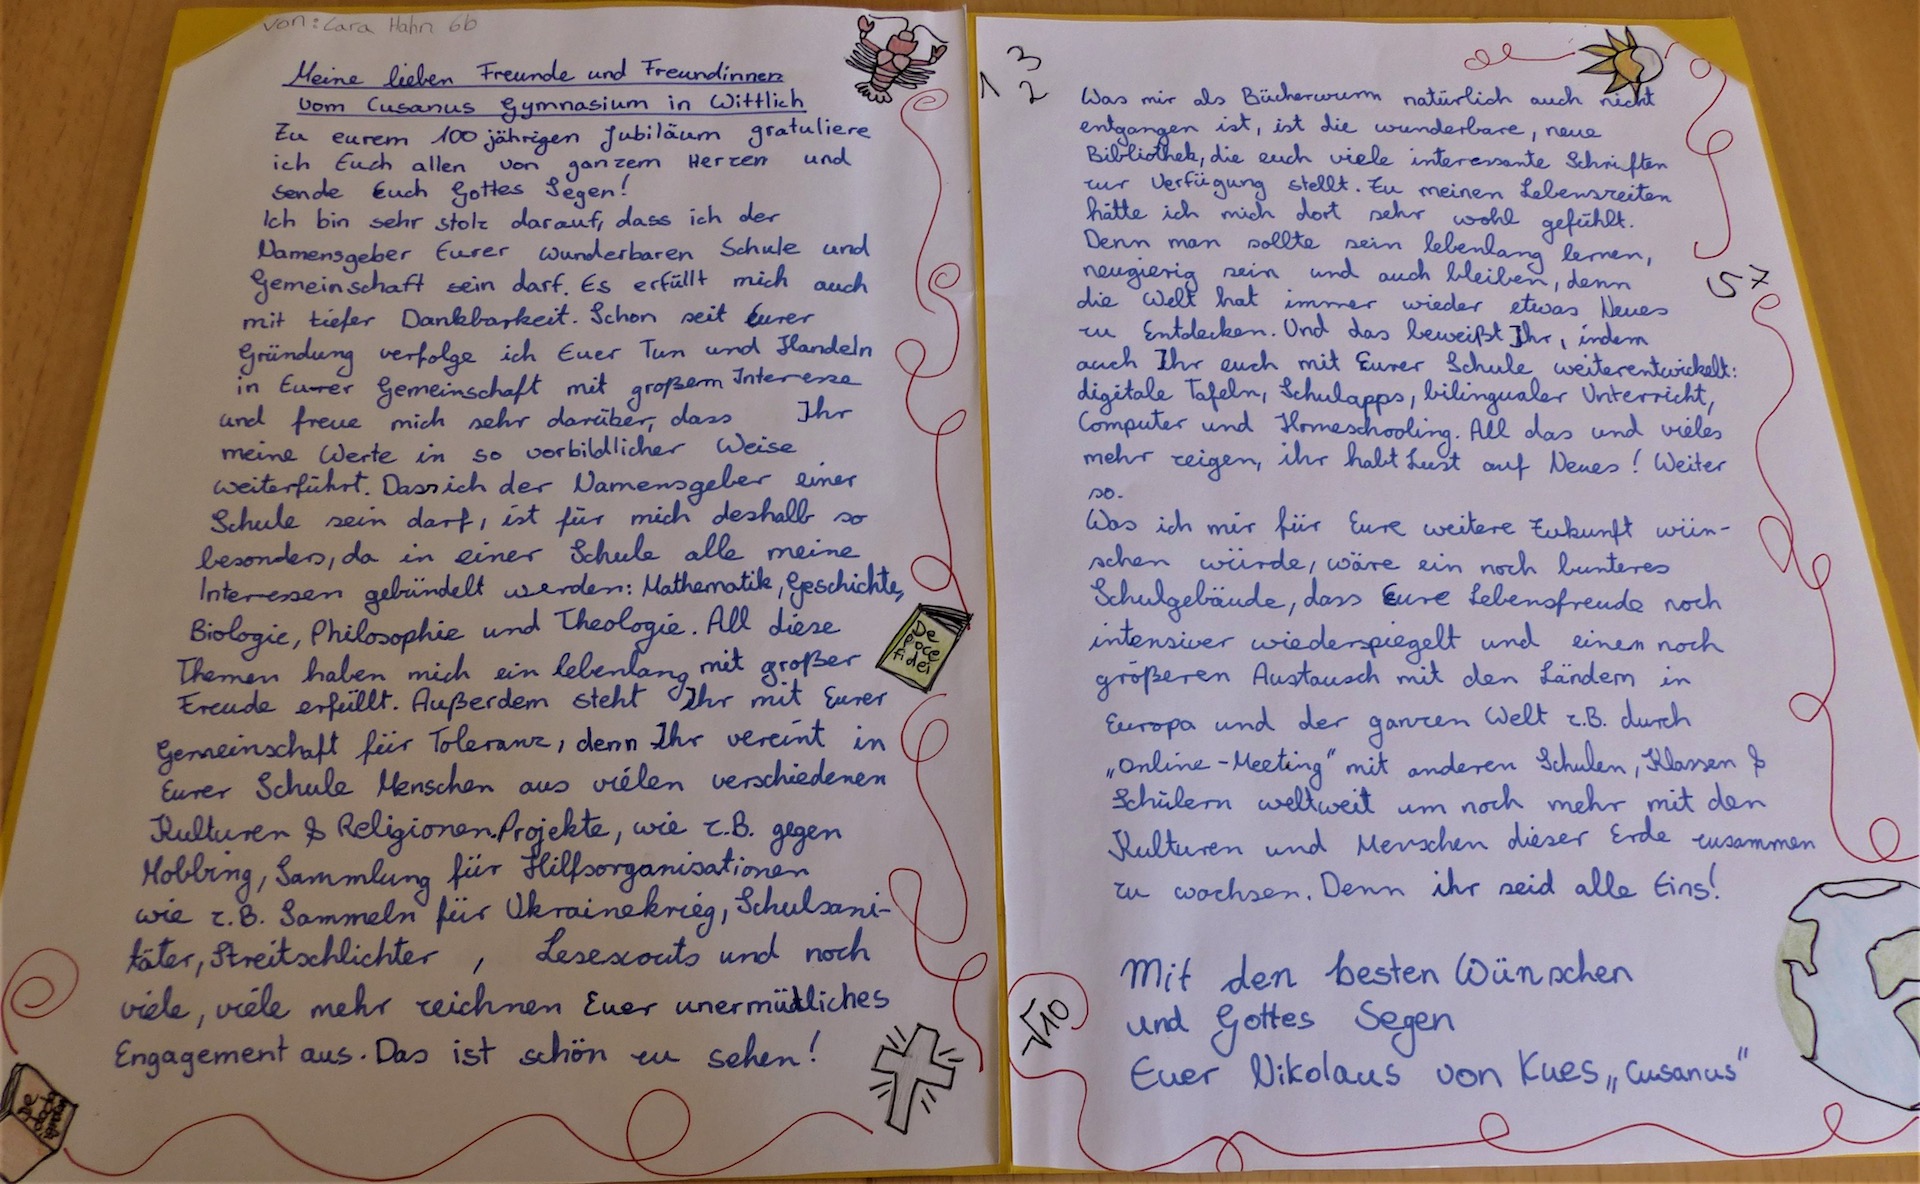 von: Lara Hahn 6b
Meine lieben Freunde und Freundinnen
vom Cusanus Gymnasium in Wittlich
Zu eurem 100 jährigen Jubiläum gratuliere
ich Euch allen von ganzem Herzen und
sende Euch Gottes Segen!
Ich bin sehr stolz darauf, dass ich der
Namensgeber Eurer wunderbaren Schule und
Gemeinschaft sein darf. Es erfüllt mich auch
mit tiefer Dankbarkeit. Schon seit Eurer
Gründung verfolge ich Euer Tun und Handeln
in Eurer Gemeinschaft mit großem Interesse
und freue mich sehr darüber, dass Ihr
meine Werte in so vorbildlicher Weise
weiterführt. Dass ich der Namensgeber einer
Schule sein darf, ist für mich deshalb so
besonders, da in einer Schule alle meine
Interessen gebündelt werden: Mathematik, Geschichte,
Biologie, Philosophie und Theologie. All diese
Themen haben mich ein lebenlang mit großer
Freude erfüllt. Außerdem steht Ihr mit Eurer
Gemeinschaft für Toleranz, denn Ihr vereint in
Eurer Schule Menschen aus vielen verschiedenen
Kulturen & Religionen. Projekte, wie z.B. gegen
Mobbing, Sammlung für Hilfsorganisationen
wie z.B. Sammeln für Ukrainekrieg, Schulsani-
täter, Streitschlichter , Lesescouts und noch
viele, viele mehr zeichnen Euer unermüdliches
Engagement aus. Das ist schön zu sehen!
De pace fidei
1 3
2
Was mir als Bücherwurm natürlich auch nicht
entgangen ist, ist die wunderbare, neue
Bibliothek, die euch viele interessante Schriften
zur Verfügung stellt. Zu meinen Lebenszeiten
hätte ich mich dort sehr wohl gefühlt.
Denn man sollte sein lebenlang lernen,
neugierig sein und auch bleiben, denn
die Welt hat immer wieder etwas Neues
zu Entdecken. Und das beweißt Ihr, indem
auch Ihr euch mit Eurer Schule weiterentwickelt:
digitale Tafeln, Schulapps, bilingualer Unterricht,
Computer und Homeschooling. All das und vieles
mehr zeigen, ihr habt Lust auf Neues! Weiter
so.
Was ich mir für Eure weitere Zukunft wün-
schen würde, wäre ein noch bunteres
Schulgebäude, dass Eure Lebensfreude noch
intensiver wiederspiegelt und einen noch
größeren Austausch mit den Ländern in
Europa und der ganzen Welt z.B. durch
„Online-Meeting" mit anderen Schulen, Klassen &
Schülern weltweit um noch mehr mit den
Kulturen und Menschen dieser Erde zusammen
zu wachsen. Denn ihr seid alle Eins!
Mit den besten Wünschen
und Gottes Segen
Euer Nikolaus von Kues „Cusanus"
5 7
√10